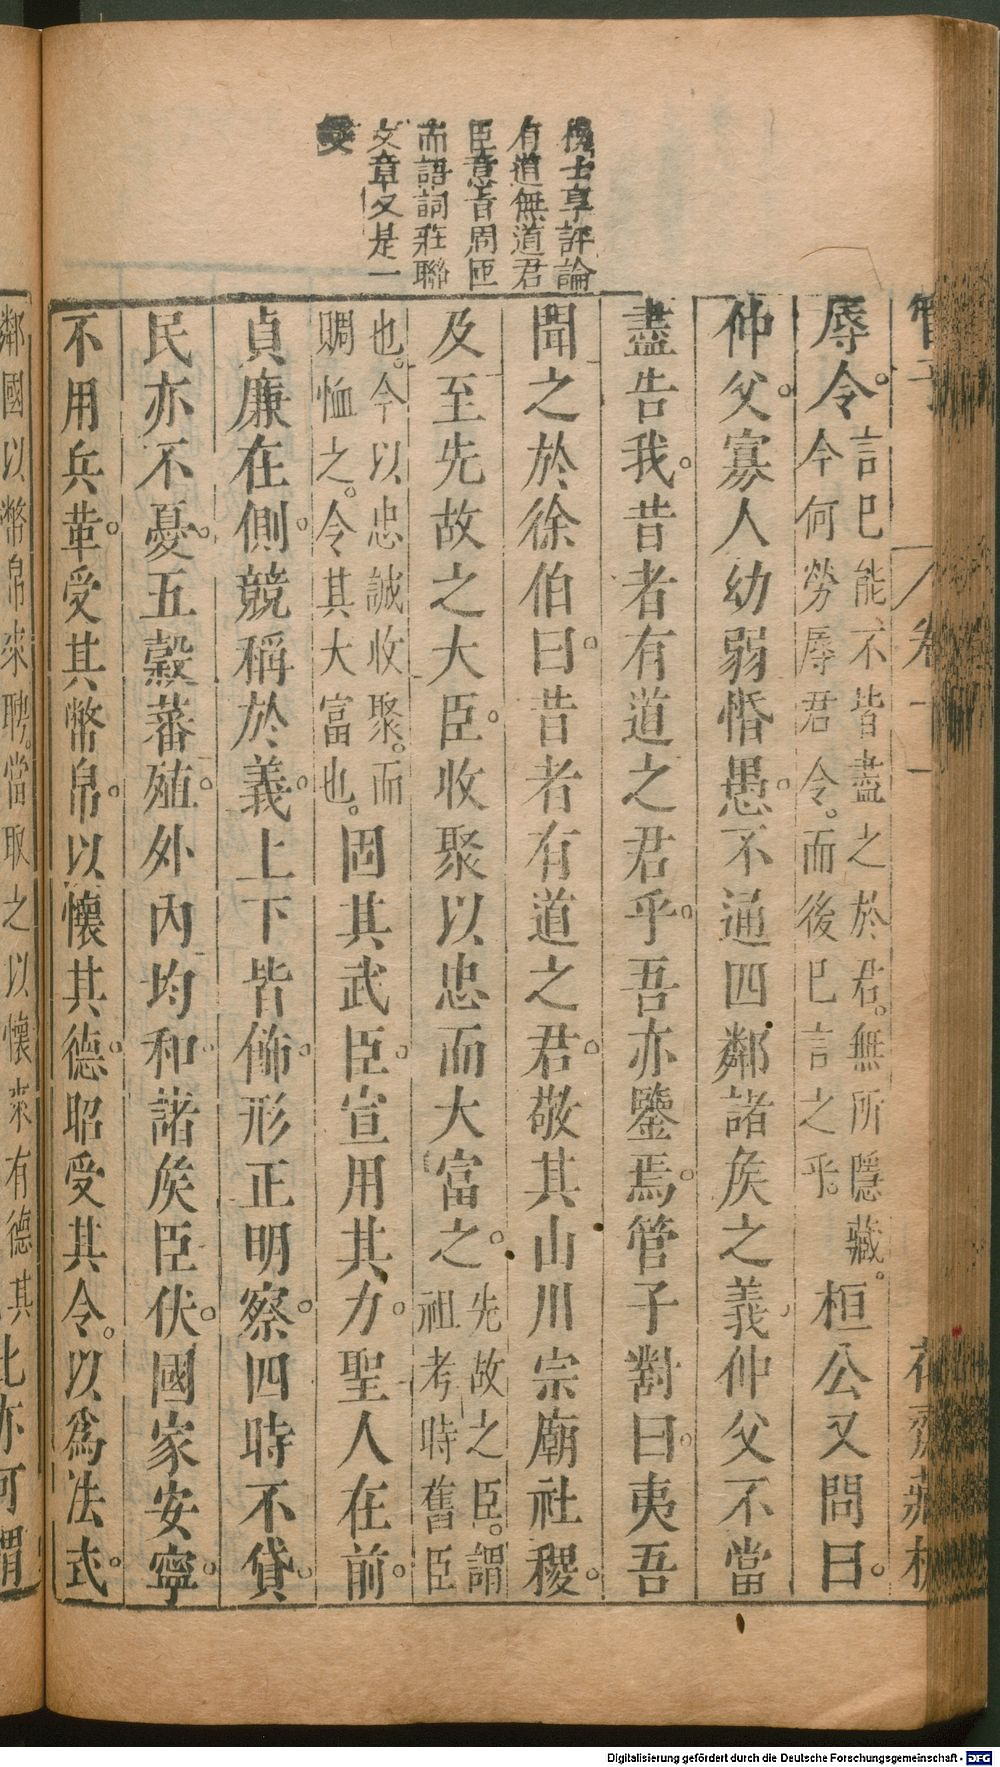 管子
卷十一
花齋藏板
辱令。言巳能不皆盡之於君。無所隱藏。今何勞辱君令。而後巳言之乎。桓公又問曰。
仲父。寡人幼弱惛愚。不通四鄰諸矦之義仲父不當
盡告我。昔者有道之君乎。吾亦鑒焉。管子對曰。夷吾
聞之於徐伯曰。昔者有道之君。敬其山川宗廟社稷。
及至先故之大臣。收聚以忠而大富之。先故之臣。謂祖考時舊臣
也。今以忠誠收聚。而賙恤之。令其大富也。固其武臣。宣用其力。聖人在前。
貞廉在側。競稱於義。上下皆飾。形正明察。四時不貸。
民亦不憂。五穀蕃殖。外內均和。諸矦臣伏。國家安寧。
不用兵革。受其幣帛。以懷其德。昭受其令。以爲法式。
士享評論
有道無道君
臣意旨周匝
而語詞莊聯
文章又是一
變
鄰國以幣帛來聘。當取之以懷來有德其
此亦可謂
Digitalisierung gefördert durch die Deutsche Forschungsgemeinschaft - DFG